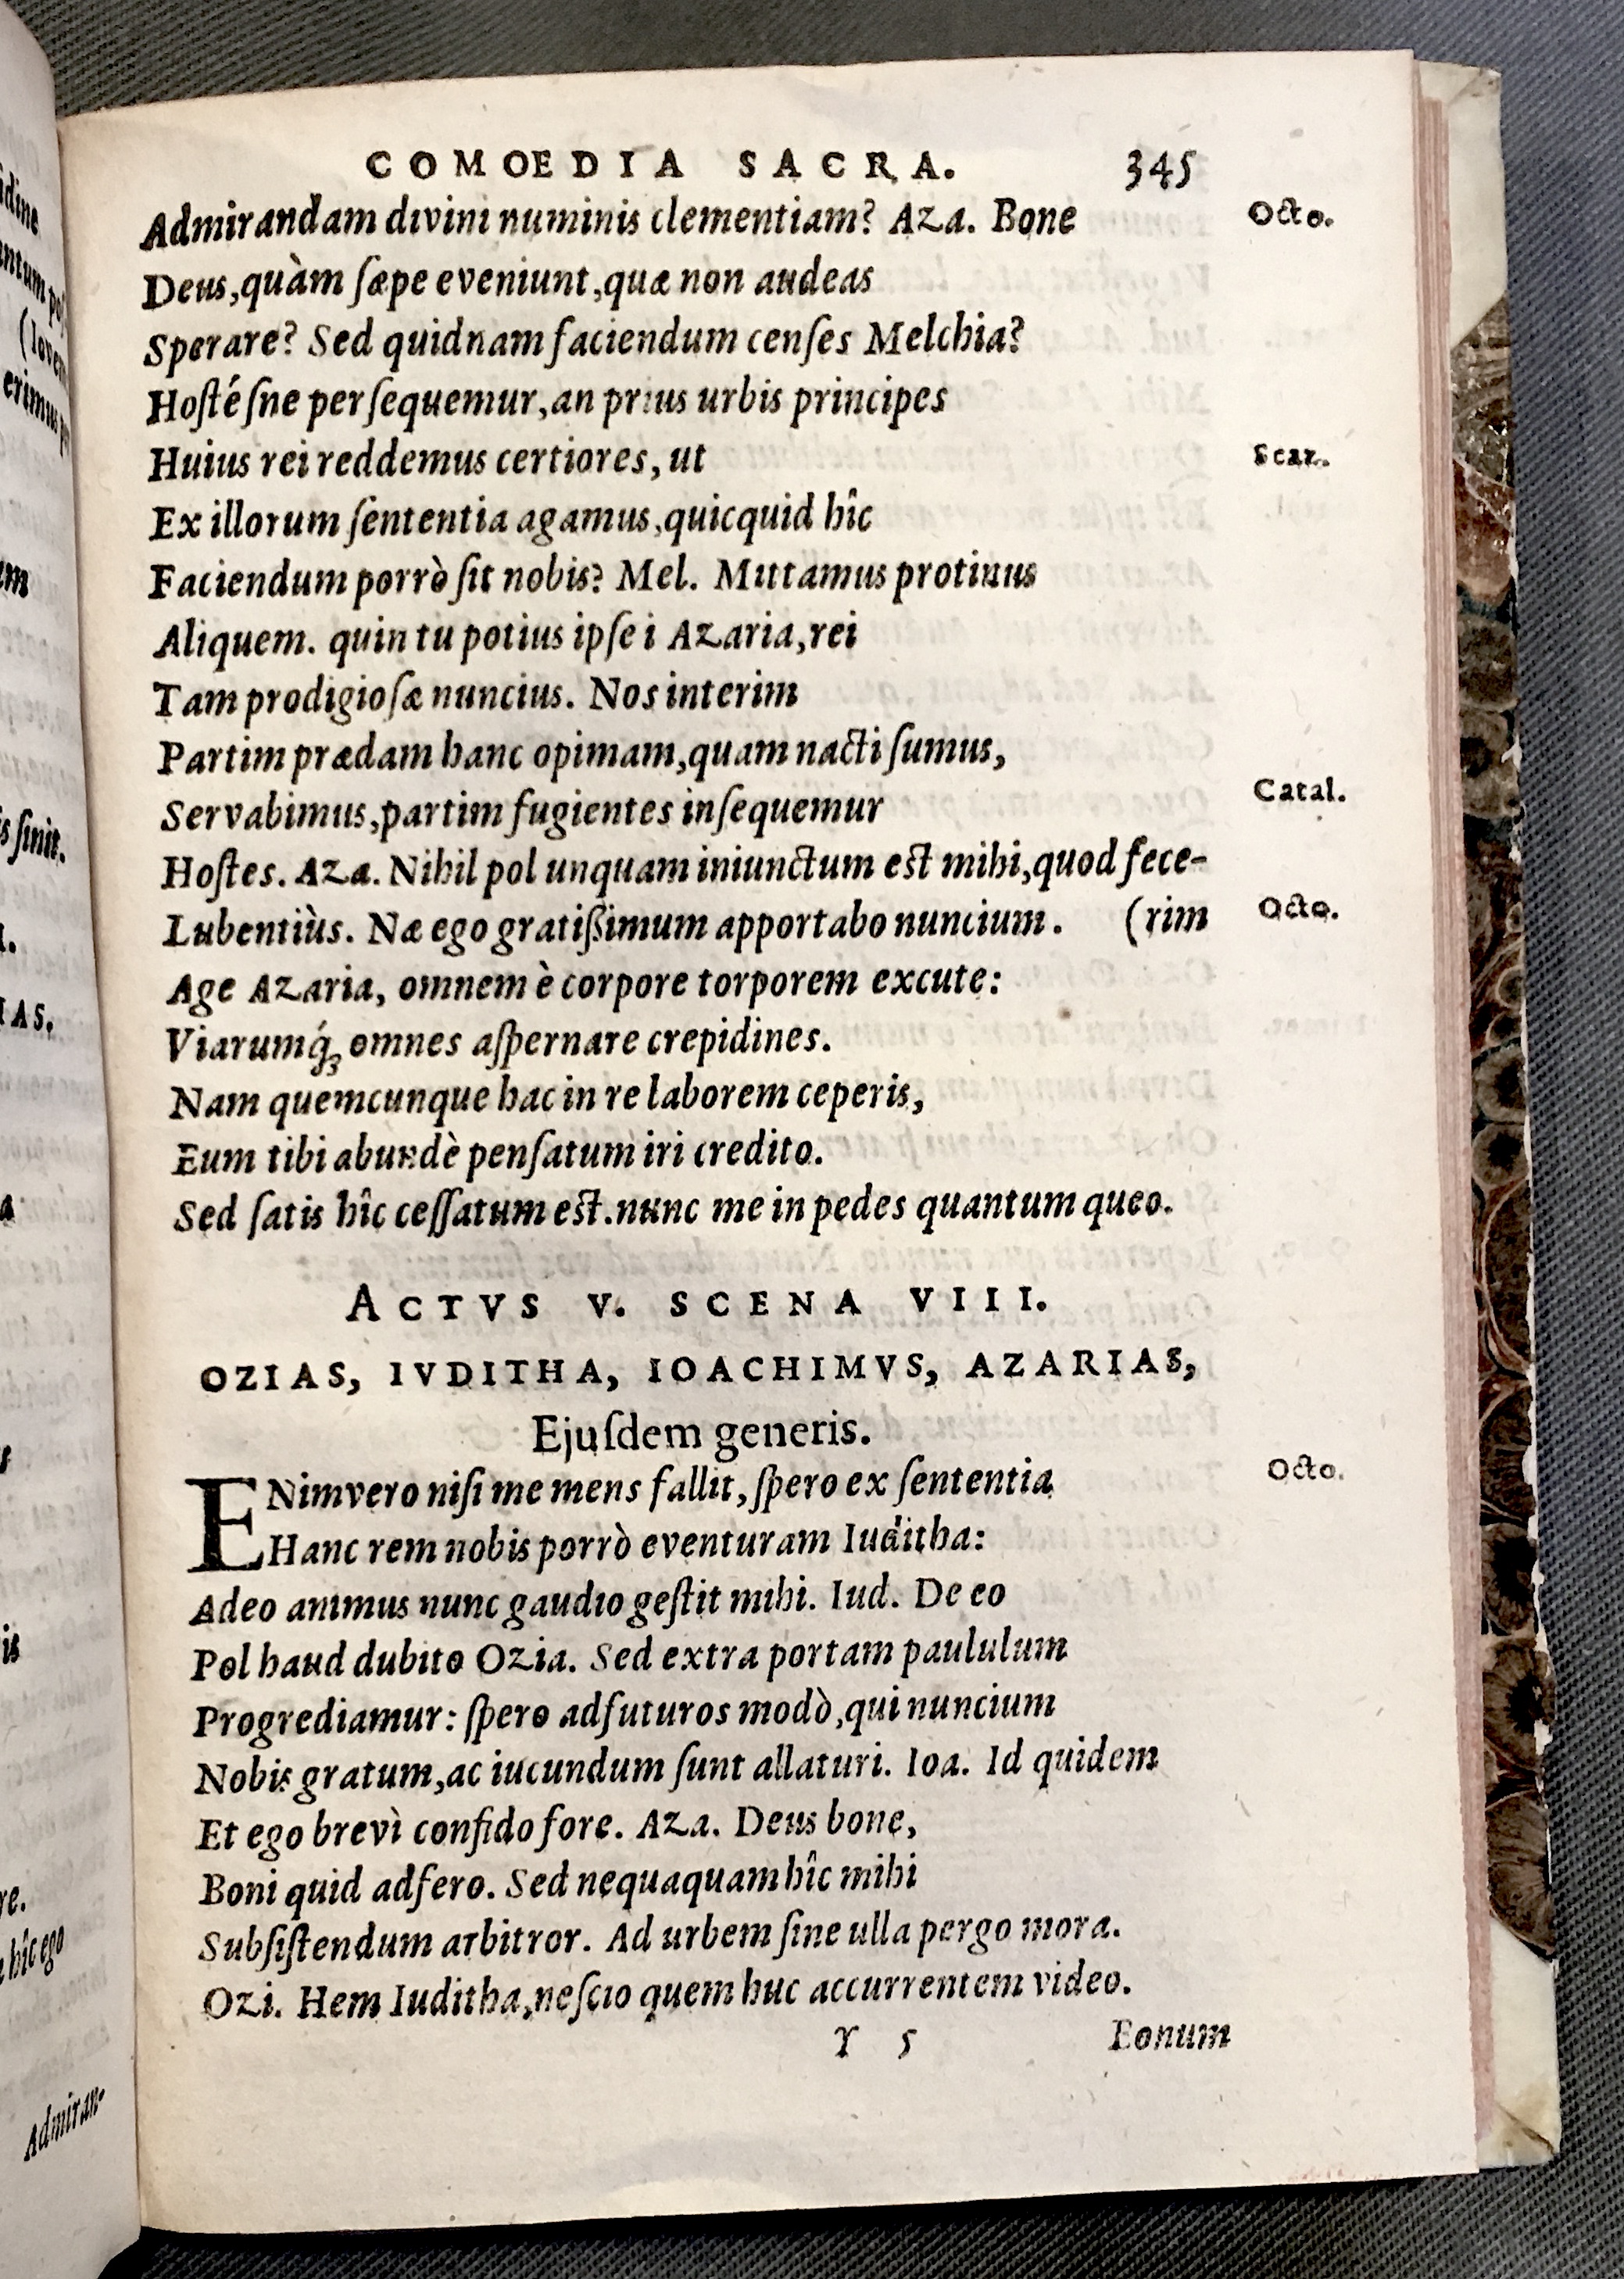 COMOEDIA SACRA. 345
Admirandam divini numinis clementiam? Aza. Bone Octo.
Deus,quàm ſæpe eveniunt,quæ non audeas
Sperare? Sed quidnam faciendum cenſes Melchia?
Hoſtéſne perſequemur,an prius urbis principes
Huius rei reddemus certiores, ut Scaz.
Ex illorum ſententia agamus,quicquid hîc
Faciendum porrò ſit nobis? Mel. Mittamus protinus
Aliquem. quin tu potius ipſe i Azaria,rei
Tam prodigioſæ nuncius. Nos interim
Partim prædam hanc opimam,quam nacti ſumus,
Servabimus,partim fugientes inſequemur Catal.
Hoſtes. Aza. Nihil pol unquam iniunctum eſt mihi,quod fece-
Lubentiùs. Næ ego gratiſſimum apportabo nuncium. (rim Octo.
Age Azaria, omnem è corpore torporem excute:
Viarumq́ꝫ omnes aſpernare crepidines.
Nam quemcunque hac in re laborem ceperis,
Eum tibi abundè penſatum iri credito.
Sed ſatis hîc ceſſatum eſt.nunc me in pedes quantum queo.
ACTVS V. SCENA VIII.
OZIAS, IVDITHA, IOACHIMVS, AZARIAS,
Ejuſdem generis.
ENimvero niſi me mens fallit, ſpero ex ſententia Octo.
Hanc rem nobis porrò eventuram Iuditha:
Adeo animus nunc gaudio geſtit mihi. Iud. De eo
Pol haud dubito Ozia. Sed extra portam paululum
Progrediamur: ſpero adfuturos modò,qui nuncium
Nobis gratum,ac iucundum ſunt allaturi. Ioa. Id quidem
Et ego brevì confido fore. Aza. Deus bone,
Boni quid adfero. Sed nequaquam hîc mihi
Subſiſtendum arbitror. Ad urbem ſine ulla pergo mora.
Ozi. Hem Iuditha,neſcio quem huc accurrentem video.
Y 5 Bonum